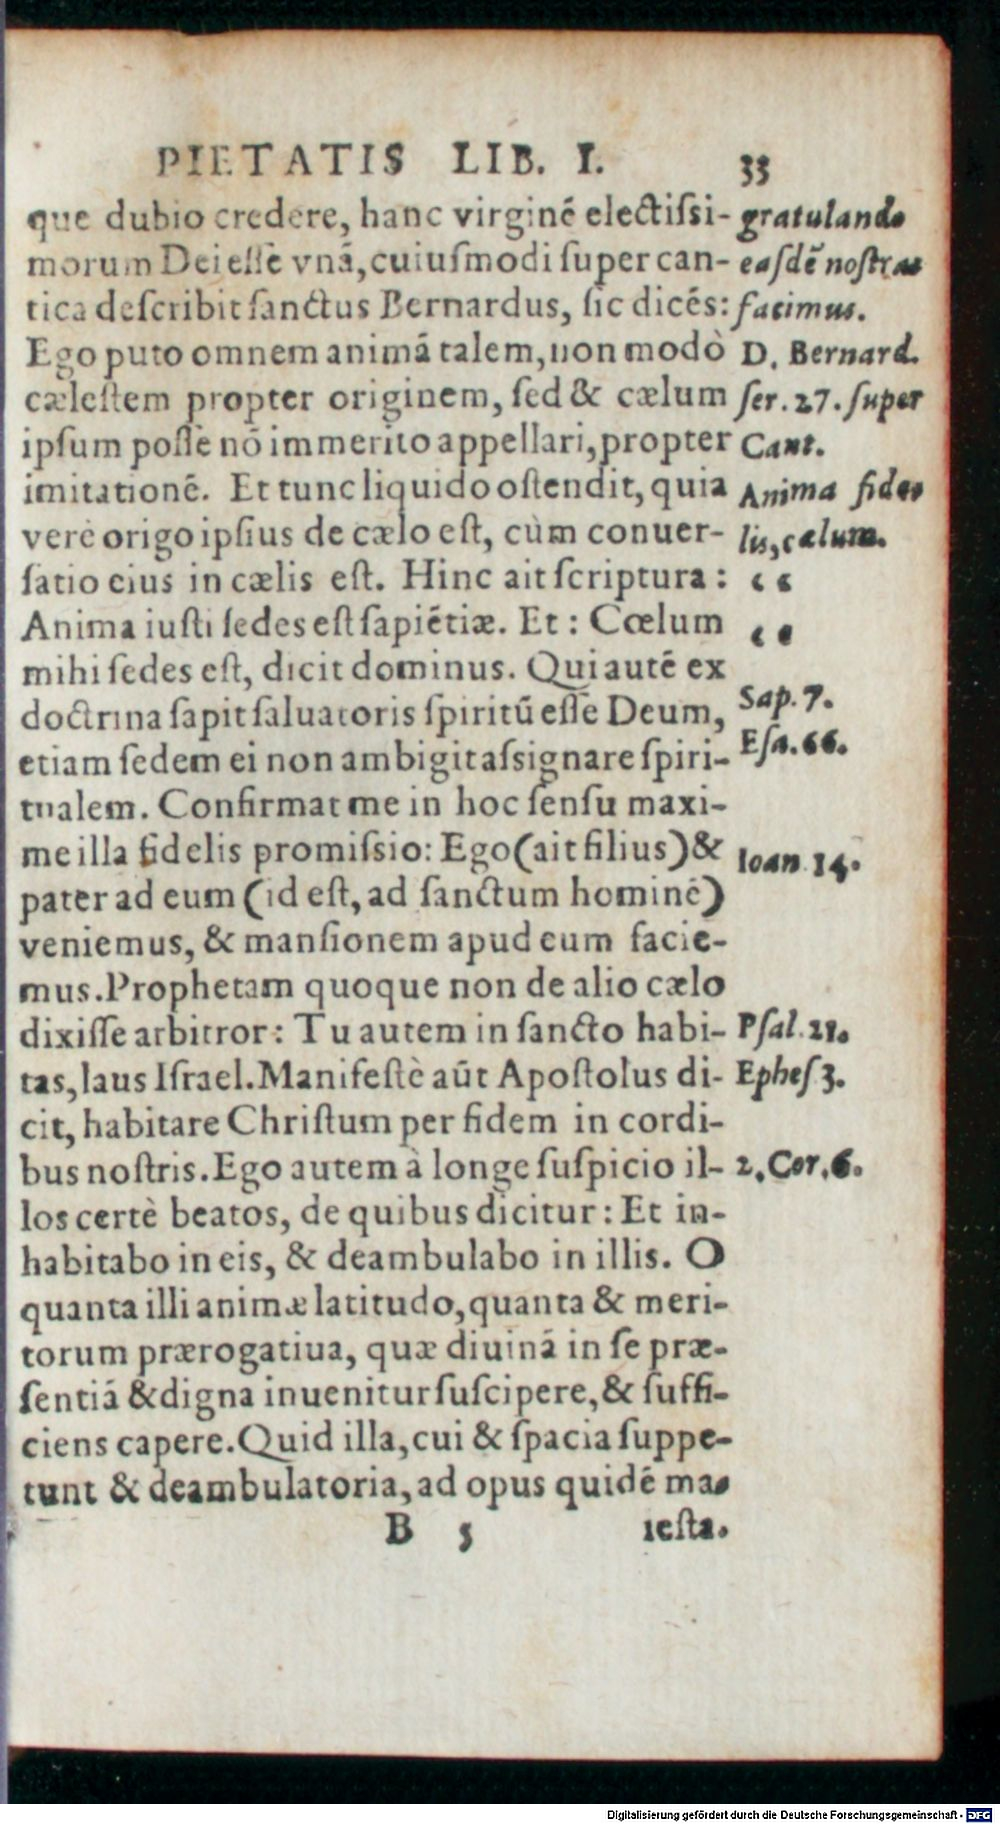 PIETATIS LIB. I. 33
que dubio credere, hanc virginē electiſſi-
morum Dei eſſe vnā, cuiuſmodi ſuper can-
tica deſcribit ſanctus Bernardus, ſic dicēs:
Ego puto omnem animā talem, non modò
cæleſtem propter originem, ſed & cælum
ipſum poſſe nō immerito appellari, propter
imitationē. Et tunc liquido oſtendit, quia
verè origo ipſius de cælo eſt, cùm conuer-
ſatio eius in cælis eſt. Hinc ait ſcriptura:
Anima iuſti ſedes eſt ſapiētiæ. Et: Cœlum
mihi ſedes eſt, dicit dominus. Qui autē ex
doctrina ſapit ſaluatoris ſpiritū eſſe Deum,
etiam ſedem ei non ambigit aſsignare ſpiri-
tualem. Confirmat me in hoc ſenſu maxi-
me illa fidelis promiſsio: Ego (ait filius) &
pater ad eum (id eſt, ad ſanctum hominē)
veniemus, & manſionem apud eum facie-
mus. Prophetam quoque non de alio cælo
dixiſſe arbitror: Tu autem in ſancto habi-
tas, laus Iſrael. Manifeſtè aūt Apoſtolus di-
cit, habitare Chriſtum per fidem in cordi-
bus noſtris. Ego autem à longe ſuſpicio il-
los certè beatos, de quibus dicitur: Et in-
habitabo in eis, & deambulabo in illis. O
quanta illi animæ latitudo, quanta & meri-
torum prærogatiua, quæ diuinā in ſe præ-
ſentiā & digna inuenitur ſuſcipere, & ſuffi-
ciens capere. Quid illa, cui & ſpacia ſuppe-
tunt & deambulatoria, ad opus quidē ma-
B 5 ieſta-
gratulando
eaſdē noſtras
facimus.
D. Bernard.
ſer. 27. ſuper
Cant.
Anima fide-
lis, cælum.
“
“
Sap. 7.
Eſa. 66.
Ioan. 14.
Pſal. 21.
Epheſ 3.
2. Cor. 6.
Digitalisierung gefördert durch die Deutsche Forschungsgemeinschaft - DFG